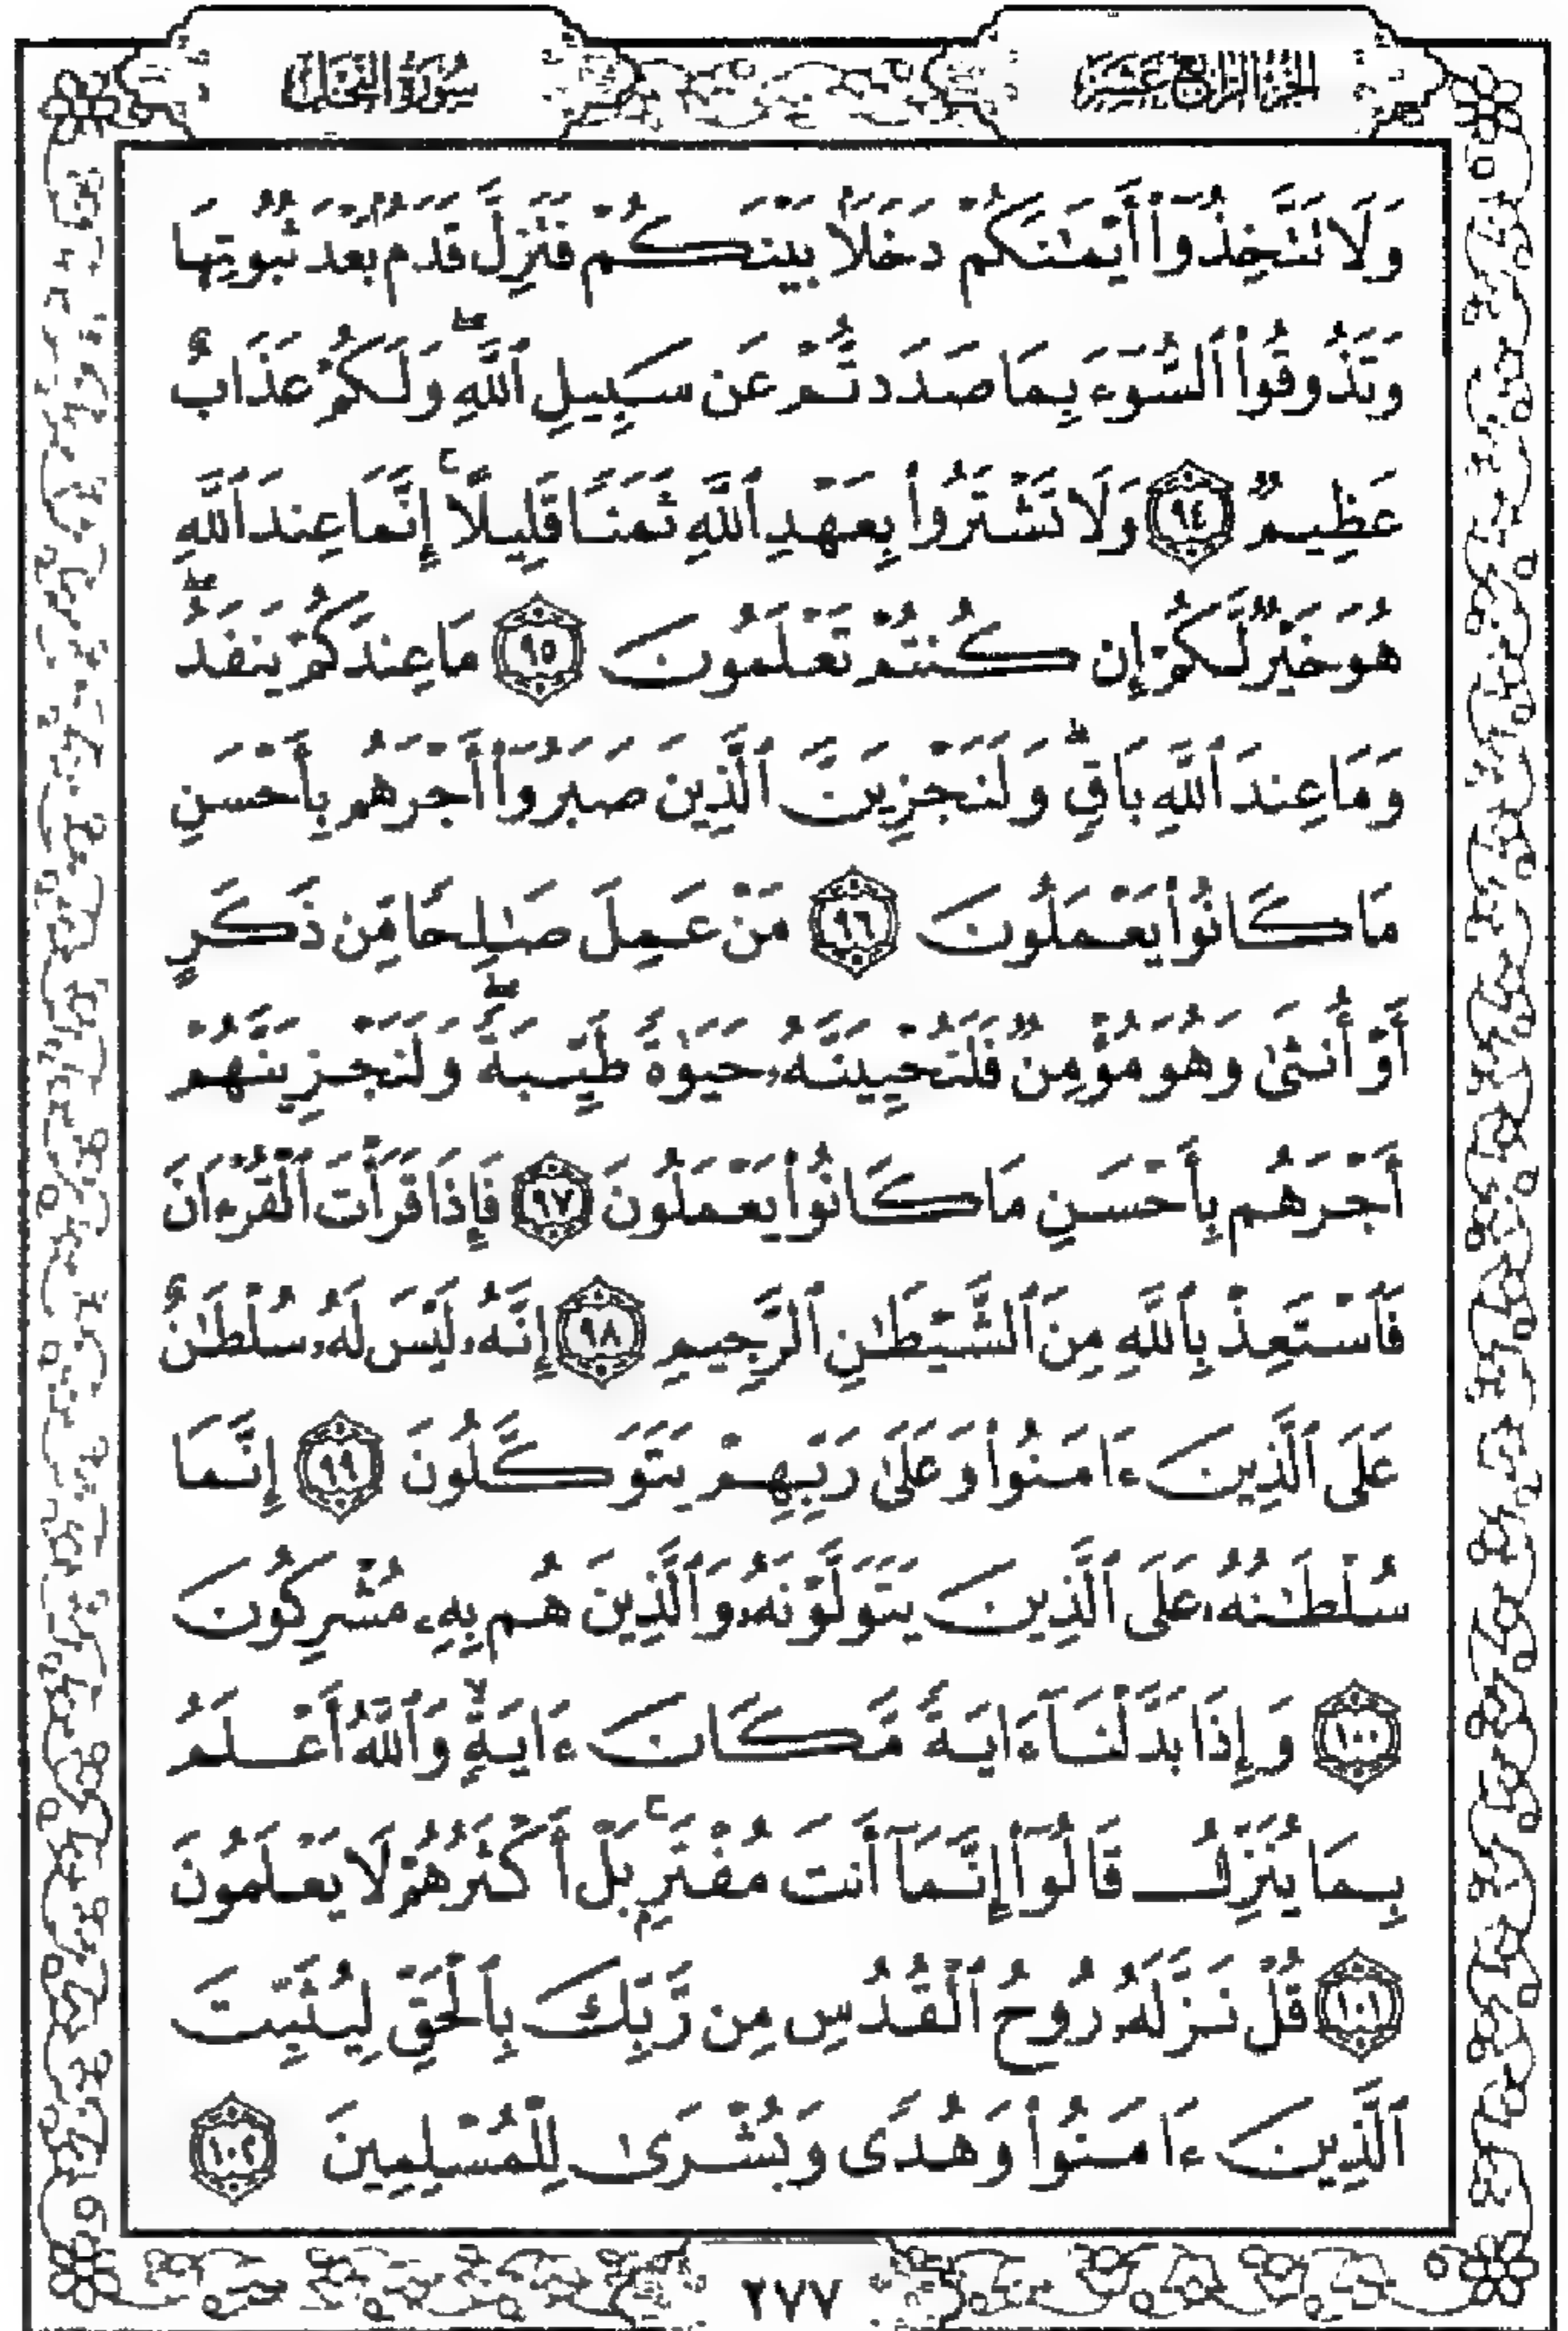 الجزء الرابع عشر
سورة النحل
وَلَا تَتَّخِذُوٓا۟ أَيْمَـٰنَكُمْ دَخَلًۢا بَيْنَكُمْ فَتَزِلَّ قَدَمٌۢ بَعْدَ ثُبُوتِهَا
وَتَذُوقُوا۟ ٱلسُّوٓءَ بِمَا صَدَدتُّمْ عَن سَبِيلِ ٱللَّهِ ۖ وَلَكُمْ عَذَابٌ
عَظِيمٌ ٩٤ وَلَا تَشْتَرُوا۟ بِعَهْدِ ٱللَّهِ ثَمَنًا قَلِيلًا ۚ إِنَّمَا عِندَ ٱللَّهِ
هُوَ خَيْرٌ لَّكُمْ إِن كُنتُمْ تَعْلَمُونَ ٩٥ مَا عِندَكُمْ يَنفَدُ ۖ
وَمَا عِندَ ٱللَّهِ بَاقٍ ۗ وَلَنَجْزِيَنَّ ٱلَّذِينَ صَبَرُوٓا۟ أَجْرَهُم بِأَحْسَنِ
مَا كَانُوا۟ يَعْمَلُونَ ٩٦ مَنْ عَمِلَ صَـٰلِحًا مِّن ذَكَرٍ
أَوْ أُنثَىٰ وَهُوَ مُؤْمِنٌ فَلَنُحْيِيَنَّهُۥ حَيَوٰةً طَيِّبَةً ۖ وَلَنَجْزِيَنَّهُمْ
أَجْرَهُم بِأَحْسَنِ مَا كَانُوا۟ يَعْمَلُونَ ٩٧ فَإِذَا قَرَأْتَ ٱلْقُرْءَانَ
فَٱسْتَعِذْ بِٱللَّهِ مِنَ ٱلشَّيْطَـٰنِ ٱلرَّجِيمِ ٩٨ إِنَّهُۥ لَيْسَ لَهُۥ سُلْطَـٰنٌ
عَلَى ٱلَّذِينَ ءَامَنُوا۟ وَعَلَىٰ رَبِّهِمْ يَتَوَكَّلُونَ ٩٩ إِنَّمَا
سُلْطَـٰنُهُۥ عَلَى ٱلَّذِينَ يَتَوَلَّوْنَهُۥ وَٱلَّذِينَ هُم بِهِۦ مُشْرِكُونَ
١٠٠ وَإِذَا بَدَّلْنَآ ءَايَةً مَّكَانَ ءَايَةٍ ۙ وَٱللَّهُ أَعْلَمُ
بِمَا يُنَزِّلُ قَالُوٓا۟ إِنَّمَآ أَنتَ مُفْتَرٍۭ ۚ بَلْ أَكْثَرُهُمْ لَا يَعْلَمُونَ
١٠١ قُلْ نَزَّلَهُۥ رُوحُ ٱلْقُدُسِ مِن رَّبِّكَ بِٱلْحَقِّ لِيُثَبِّتَ
ٱلَّذِينَ ءَامَنُوا۟ وَهُدًى وَبُشْرَىٰ لِلْمُسْلِمِينَ ١٠٢
٢٧٧